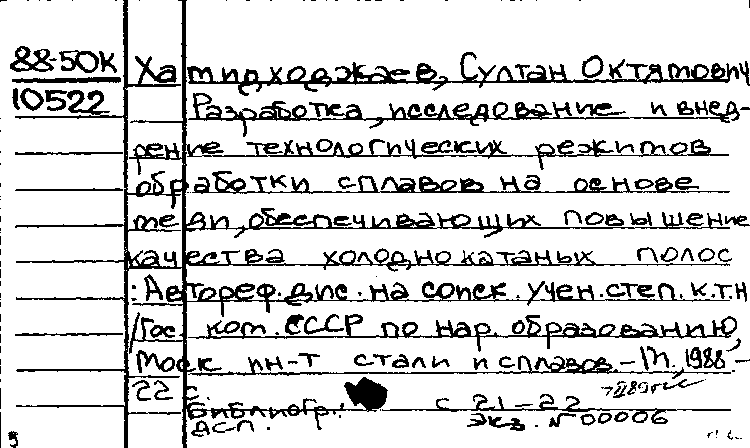 88-50К
10522
Хамидходжаев, Султан Октямович
Разработка, исследование и внед-
рение технологических режимов
обработки сплавов на основе
меди, обеспечивающих повышение
качества холоднокатаных полос
: Автореф. дис. на соиск. учен. степ. к.т.н
/Гос. ком. СССР по нар. образованию,
Моск ин-т стали и сплавов. – М., 1988. –
22 с.
Библиогр.: с 21-22
ДСП. Экз. N 00006